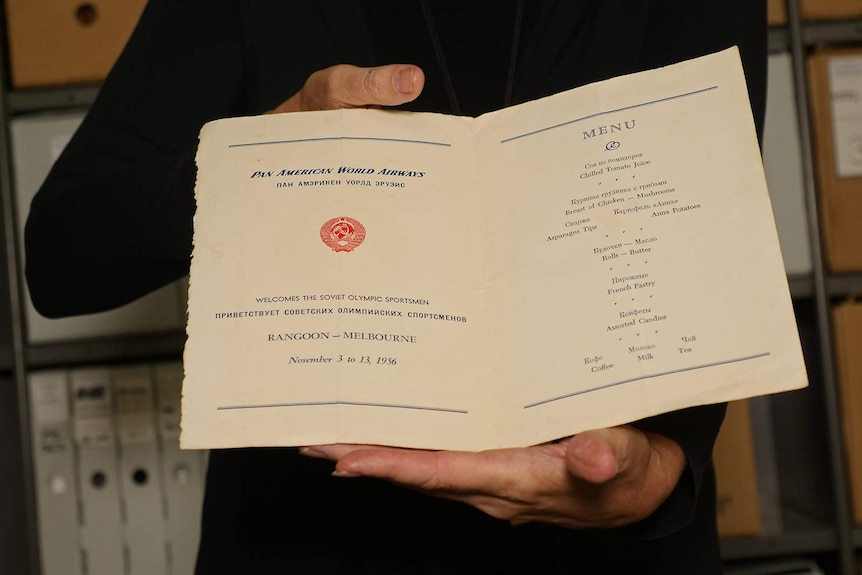 PAN AMERICAN WORLD AIRWAYS
ПАН АМЭРИКЕН УОРЛД ЭРУЭЙС
WELCOMES THE SOVIET OLYMPIC SPORTSMEN
ПРИВЕТСТВУЕТ СОВЕТСКИХ ОЛИМПИЙСКИХ СПОРТСМЕНОВ
RANGOON — MELBOURNE
November 3 to 13, 1956
MENU
Сок из помидоров
Chilled Tomato Juice
Куриная грудинка с грибами
Breast of Chicken — Mushrooms
Спаржа Картофель «Анна»
Asparagus Tips Anna Potatoes
Булочки — Масло
Rolls — Butter
Пирожные
French Pastry
Конфеты
Assorted Candies
Кофе Молоко Чай
Coffee Milk Tea